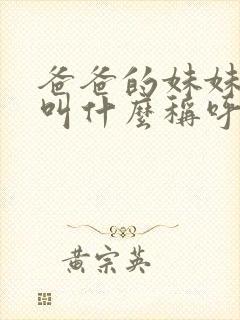 爸爸的妹妹
叫什麼稱呼
黃宗英